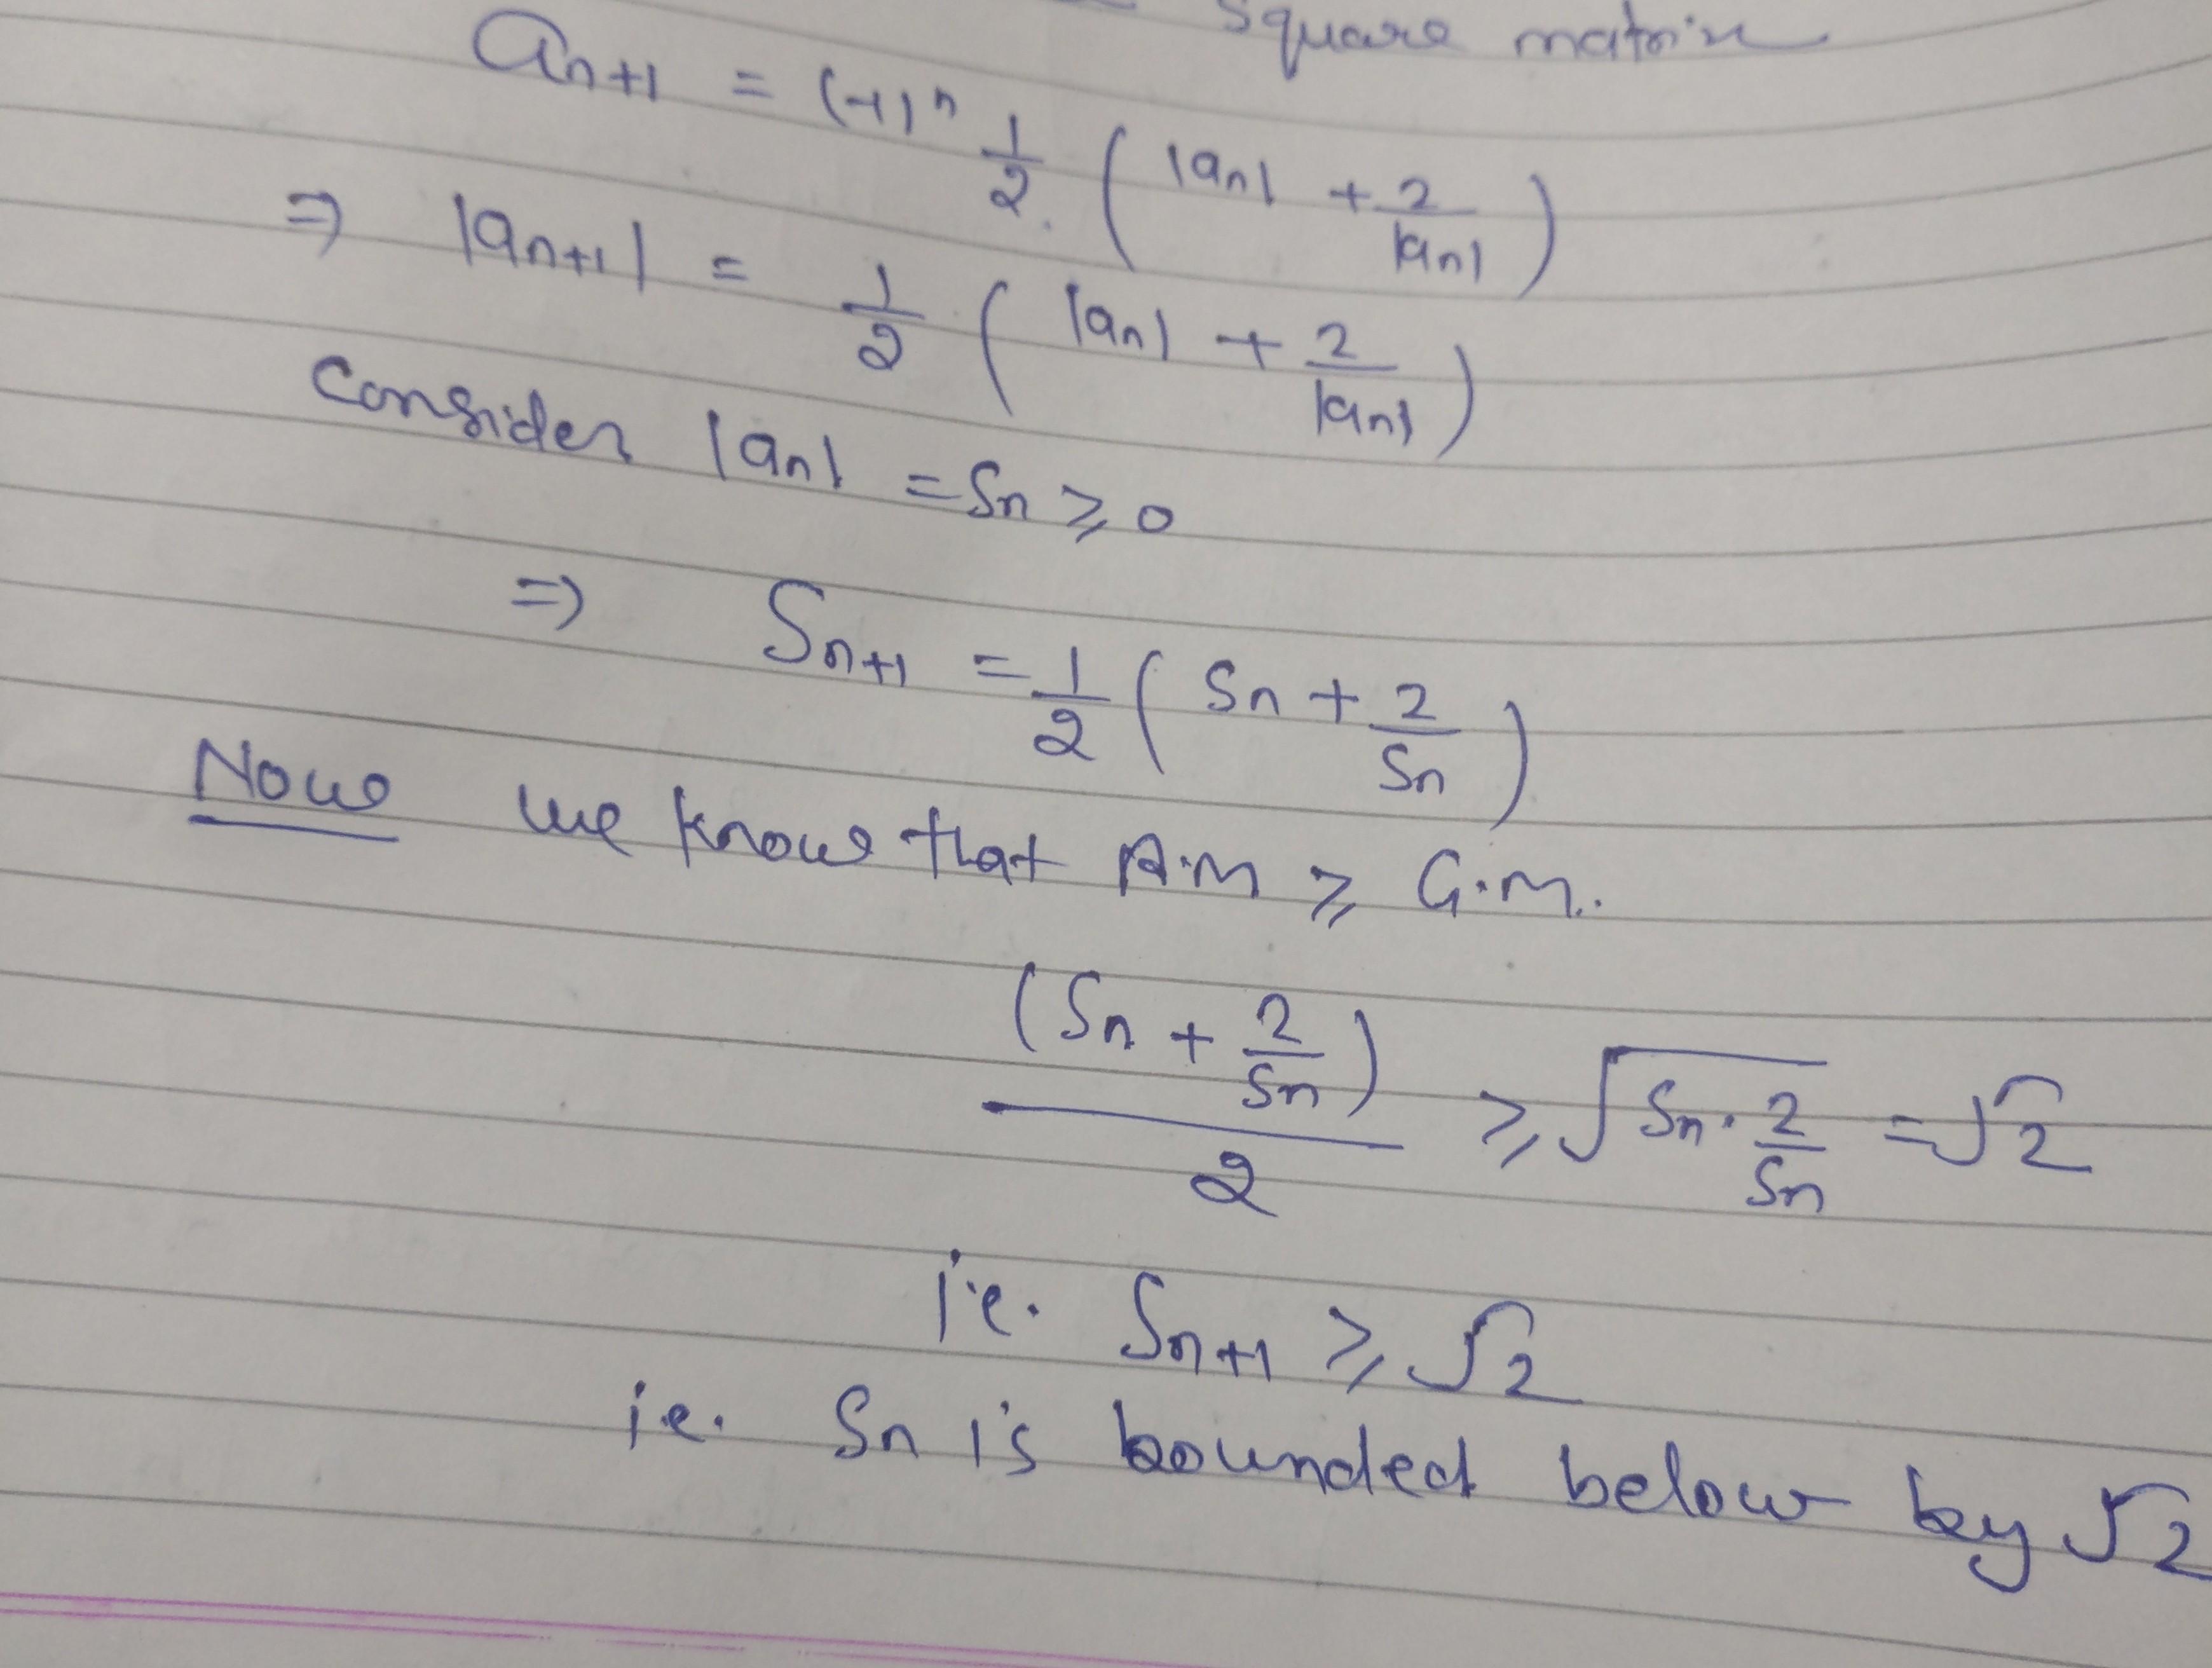 square matrix
an+1 = (-1)^n 1/2 (|an| + 2/|an|)
⇒ |an+1| = 1/2 (|an| + 2/|an|)
Consider |an| = Sn ≥ 0
⇒ Sn+1 = 1/2 (Sn + 2/Sn)
Now we know that A.M ≥ G.M.
(Sn + 2/Sn)/2 ≥ √(Sn · 2/Sn) = √2
i.e. Sn+1 ≥ √2
i.e. Sn is bounded below by √2